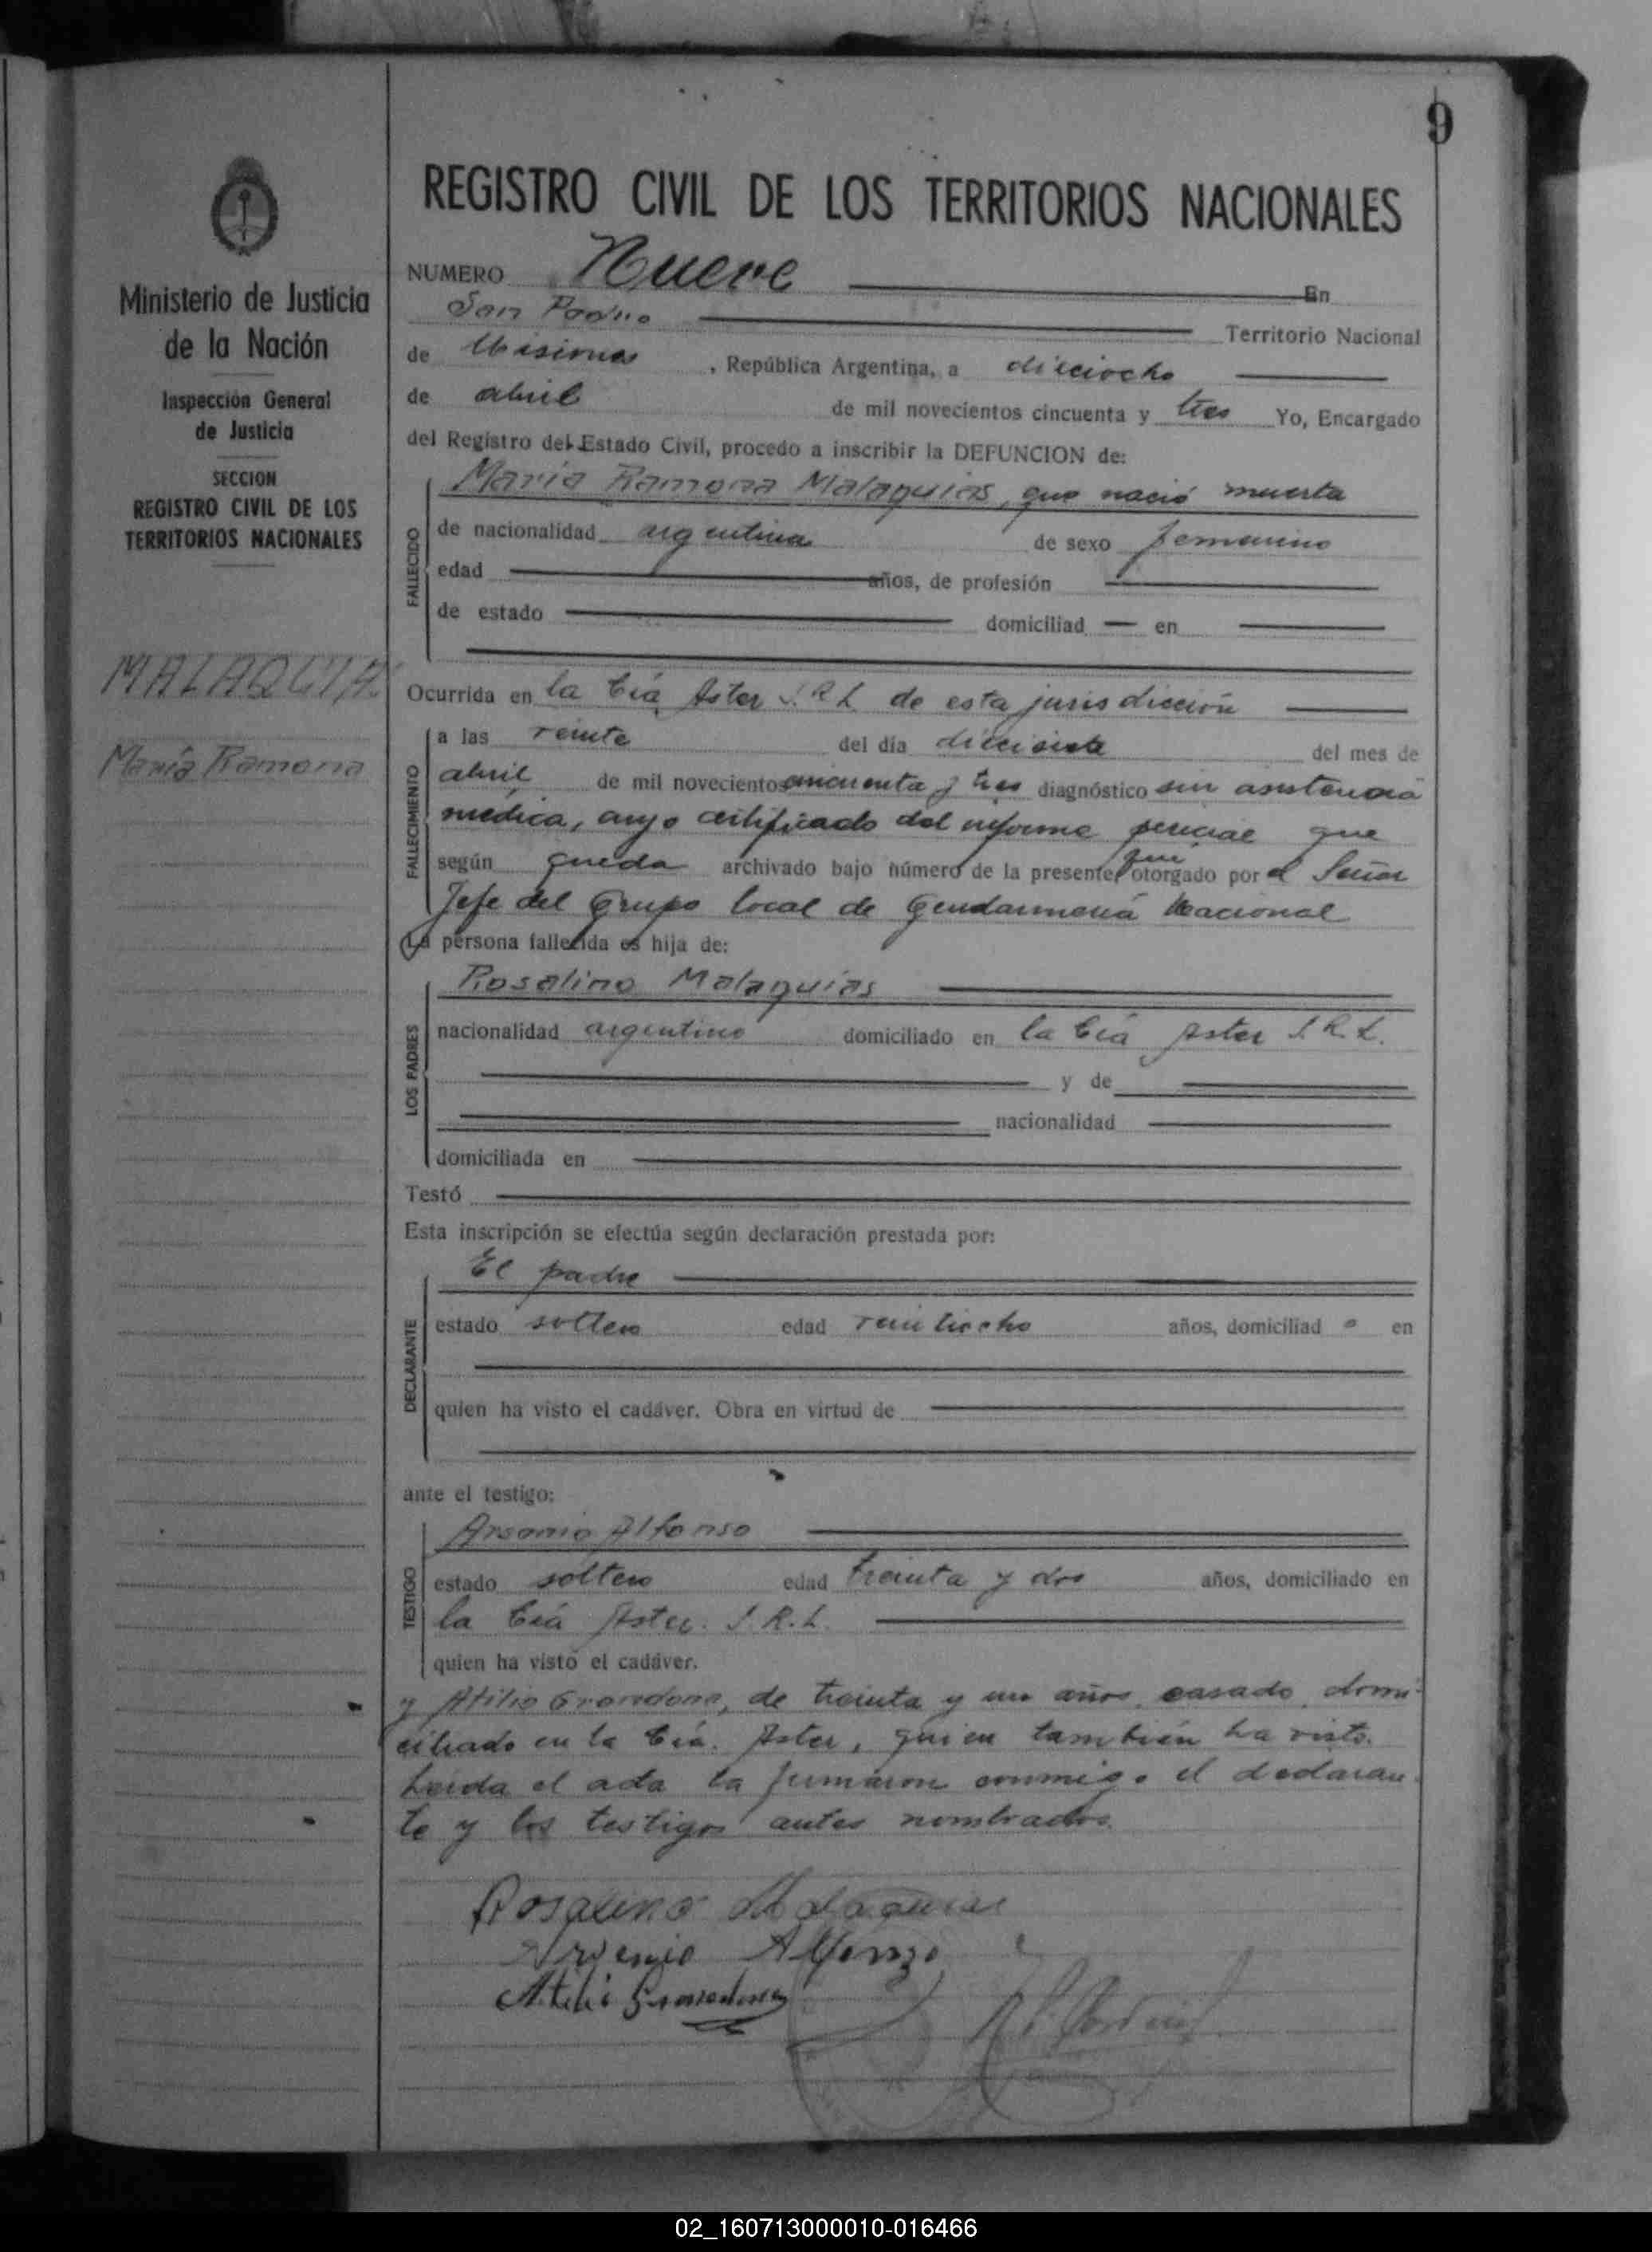 9
REGISTRO CIVIL DE LOS TERRITORIOS NACIONALES
Ministerio de Justicia
de la Nación
Inspección General
de Justicia
SECCION
REGISTRO CIVIL DE LOS
TERRITORIOS NACIONALES
MALAQUIA
María Ramona
NUMERO Nueve En
San Pedro Territorio Nacional
de Misiones, República Argentina, a dieciocho
de abril de mil novecientos cincuenta y tres Yo, Encargado
del Registro del Estado Civil, procedo a inscribir la DEFUNCION de:
FALLECIDO
María Ramona Malaquias, que nació muerta
de nacionalidad argentina de sexo femenino
edad años, de profesión
de estado domiciliad en
Ocurrida en la Cía Aster S.R.L. de esta jurisdicción
FALLECIMIENTO
a las veinte del día diecisiete del mes de
abril de mil novecientos cincuenta y tres diagnóstico sin asistencia
médica, cuyo certificado del informe pericial que
según queda archivado bajo número de la presente, fue otorgado por el Señor
Jefe del Grupo local de Gendarmería Nacional
La persona fallecida es hija de:
LOS PADRES
Rosalino Malaquias
nacionalidad argentino domiciliado en la Cía Aster S.R.L.
y de
nacionalidad
domiciliada en
Testó
Esta inscripción se efectúa según declaración prestada por:
DECLARANTE
El padre
estado soltero edad veintiocho años, domiciliado en
quien ha visto el cadáver. Obra en virtud de
ante el testigo:
TESTIGO
Arsenio Alfonso
estado soltero edad treinta y dos años, domiciliado en
la Cía Aster. S.R.L.
quien ha visto el cadáver.
y Atilio Grondona, de treinta y un años, casado, domi-
ciliado en la Cía. Aster, quien también ha visto.
Leída el acta la firmaron conmigo el declaran-
te y los testigos antes nombrados.
Rosalino Malaquias
Arsenio Alfonzo
Atilio Grondona
02_160713000010-016466